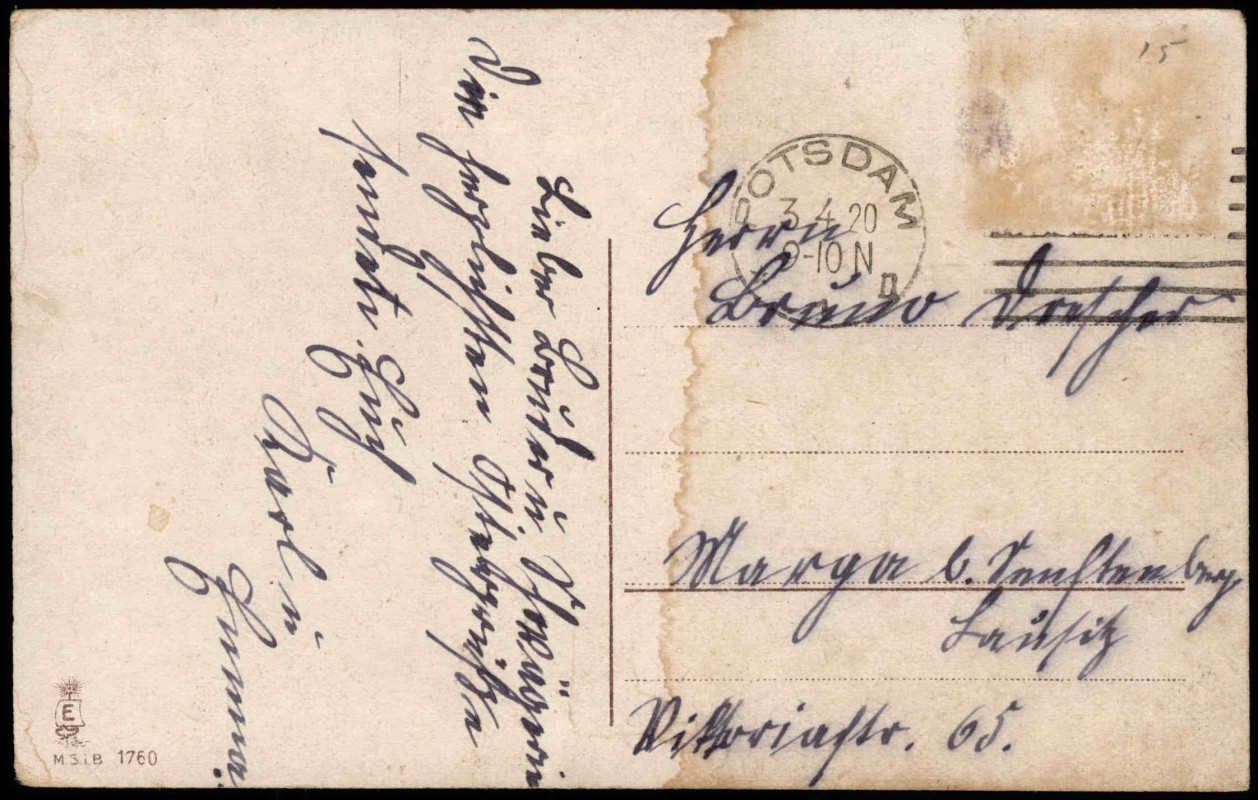 Lieber Bruder u. Schwägerin
Die herzlichsten Ostergrüße
sendet Euch
Karl u
Emma.
15
POTSDAM
3.4.20
9-10 N
n
Herrn
Bruno Drescher
Marga b. Senftenberg
Lausitz
Viktoriastr. 65.
E
M.S.i.B 1760